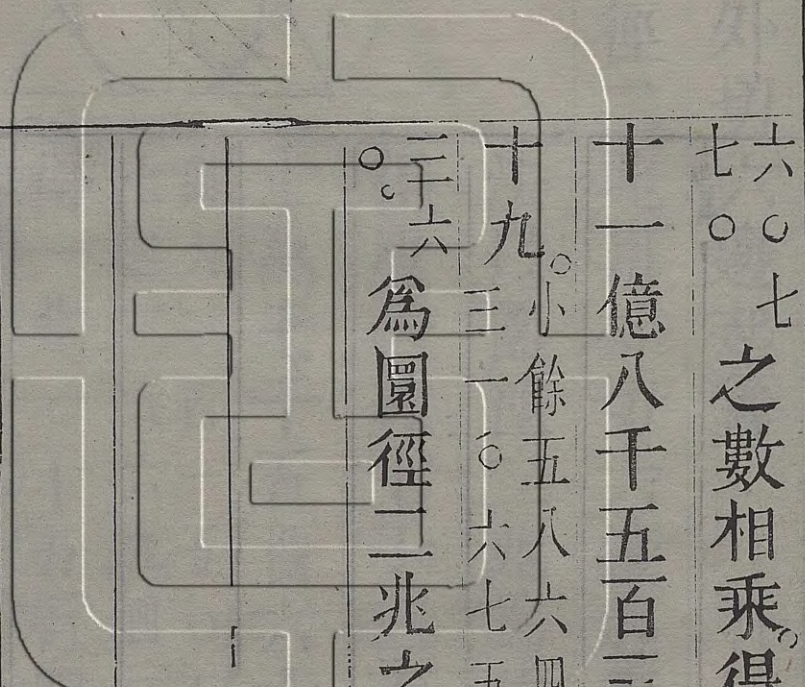 六〇七
七〇
之數相乘。得
十一億八千五百
十九。
小餘五八六四
三一〇六七五
三十六
〇。
爲圜徑二兆之